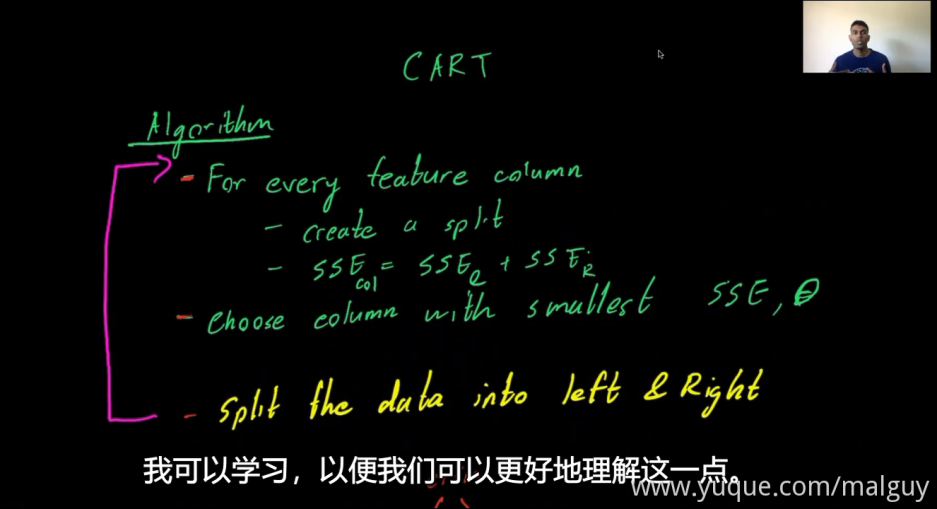 CART
Algorithm
- For every feature column
- create a split
- SSE col = SSE L + SSE R
- choose column with smallest SSE, θ
- Split the data into left & Right
我可以学习，以便我们可以更好地理解这一点。
www.yuque.com/malguy